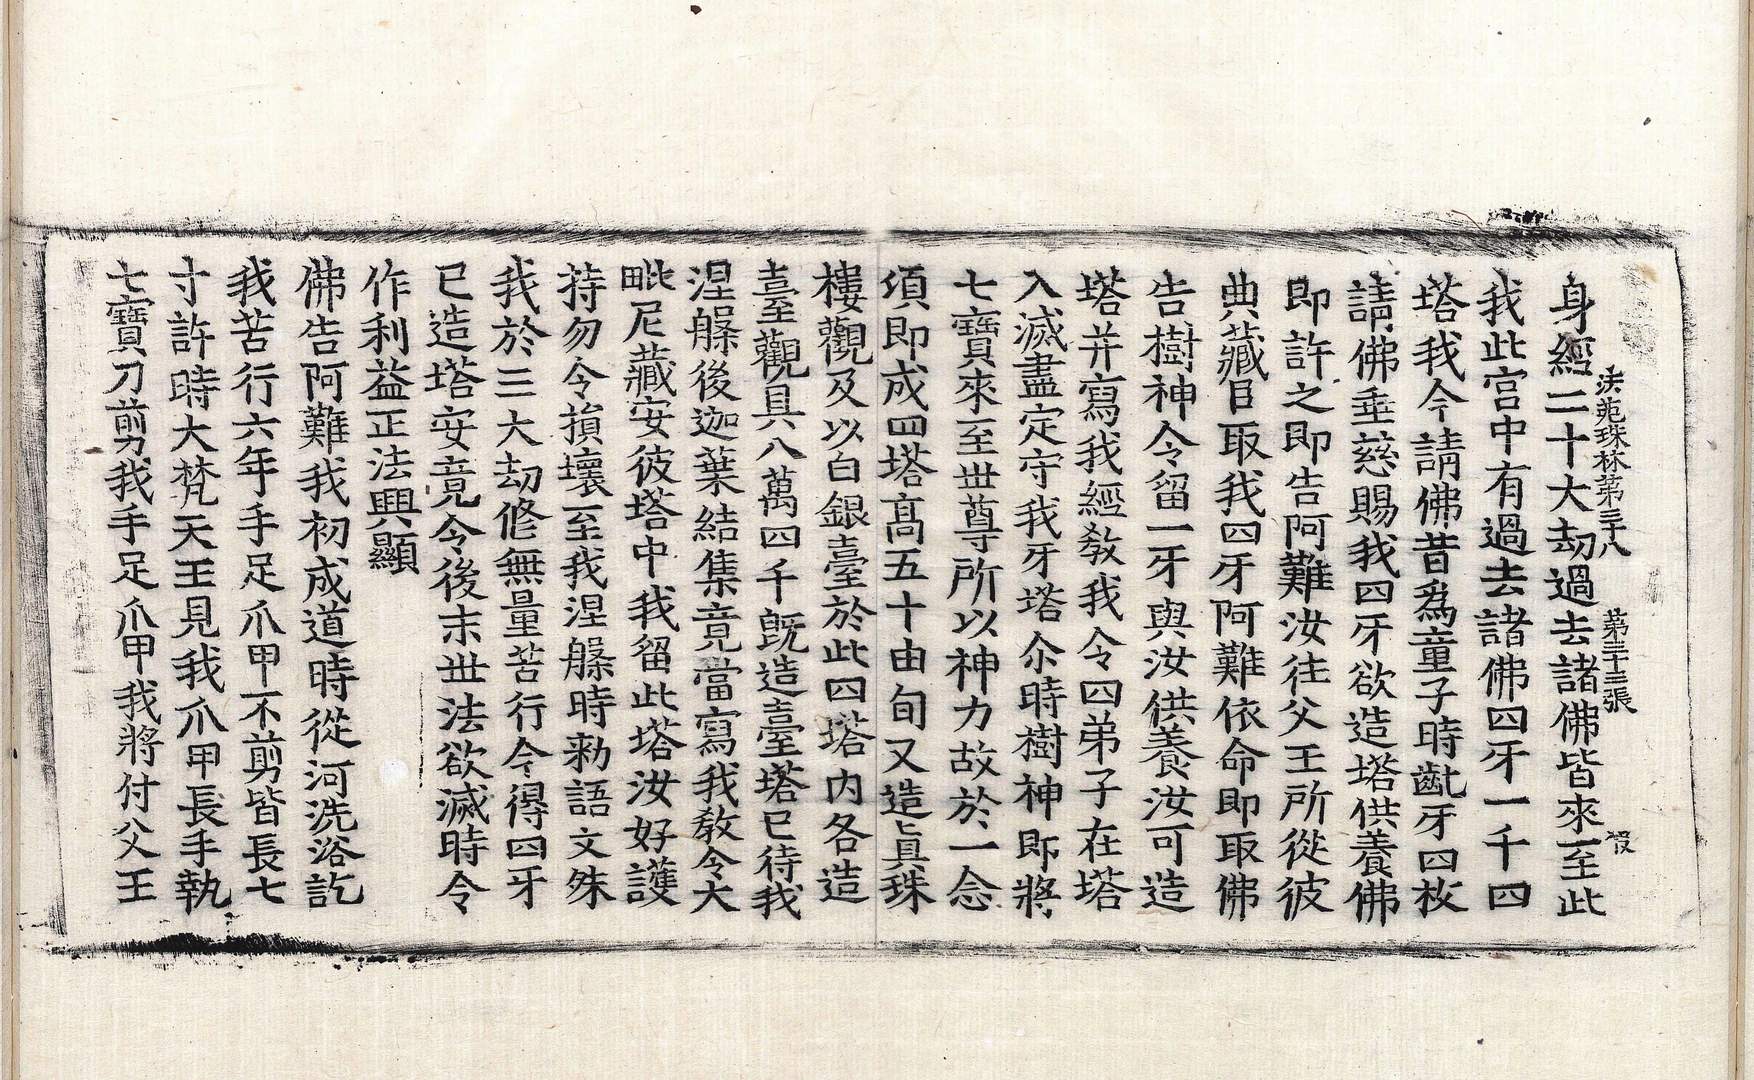 身經二十大劫過去諸佛皆來至此
法苑珠林第三十八　第三十三張　㲉
我此宮中有過去諸佛四牙一千四
塔我今請佛昔爲童子時齔牙四枚
請佛垂慈賜我四牙欲造塔供養佛
即許之即告阿難汝往父王所從彼
典藏臣取我四牙阿難依命即取佛
告樹神令留一牙與汝供養汝可造
塔并寫我經教我令四弟子在塔
入滅盡定守我牙塔尒時樹神即將
七寶來至世尊所以神力故於一念
須即成四塔高五十由旬又造眞珠
樓觀及以白銀臺於此四塔内各造
臺觀具八萬四千旣造臺塔已待我
涅槃後迦葉結集竟當寫我教令大
毗尼藏安彼塔中我留此塔汝好護
持勿令損壞至我涅槃時勑語文殊
我於三大劫修無量苦行今得四牙
已造塔安竟令後末世法欲滅時令
作利益正法興顯
佛告阿難我初成道時從河洗浴訖
我苦行六年手足爪甲不剪皆長七
寸許時大梵天王見我爪甲長手執
七寶刀剪我手足爪甲我將付父王